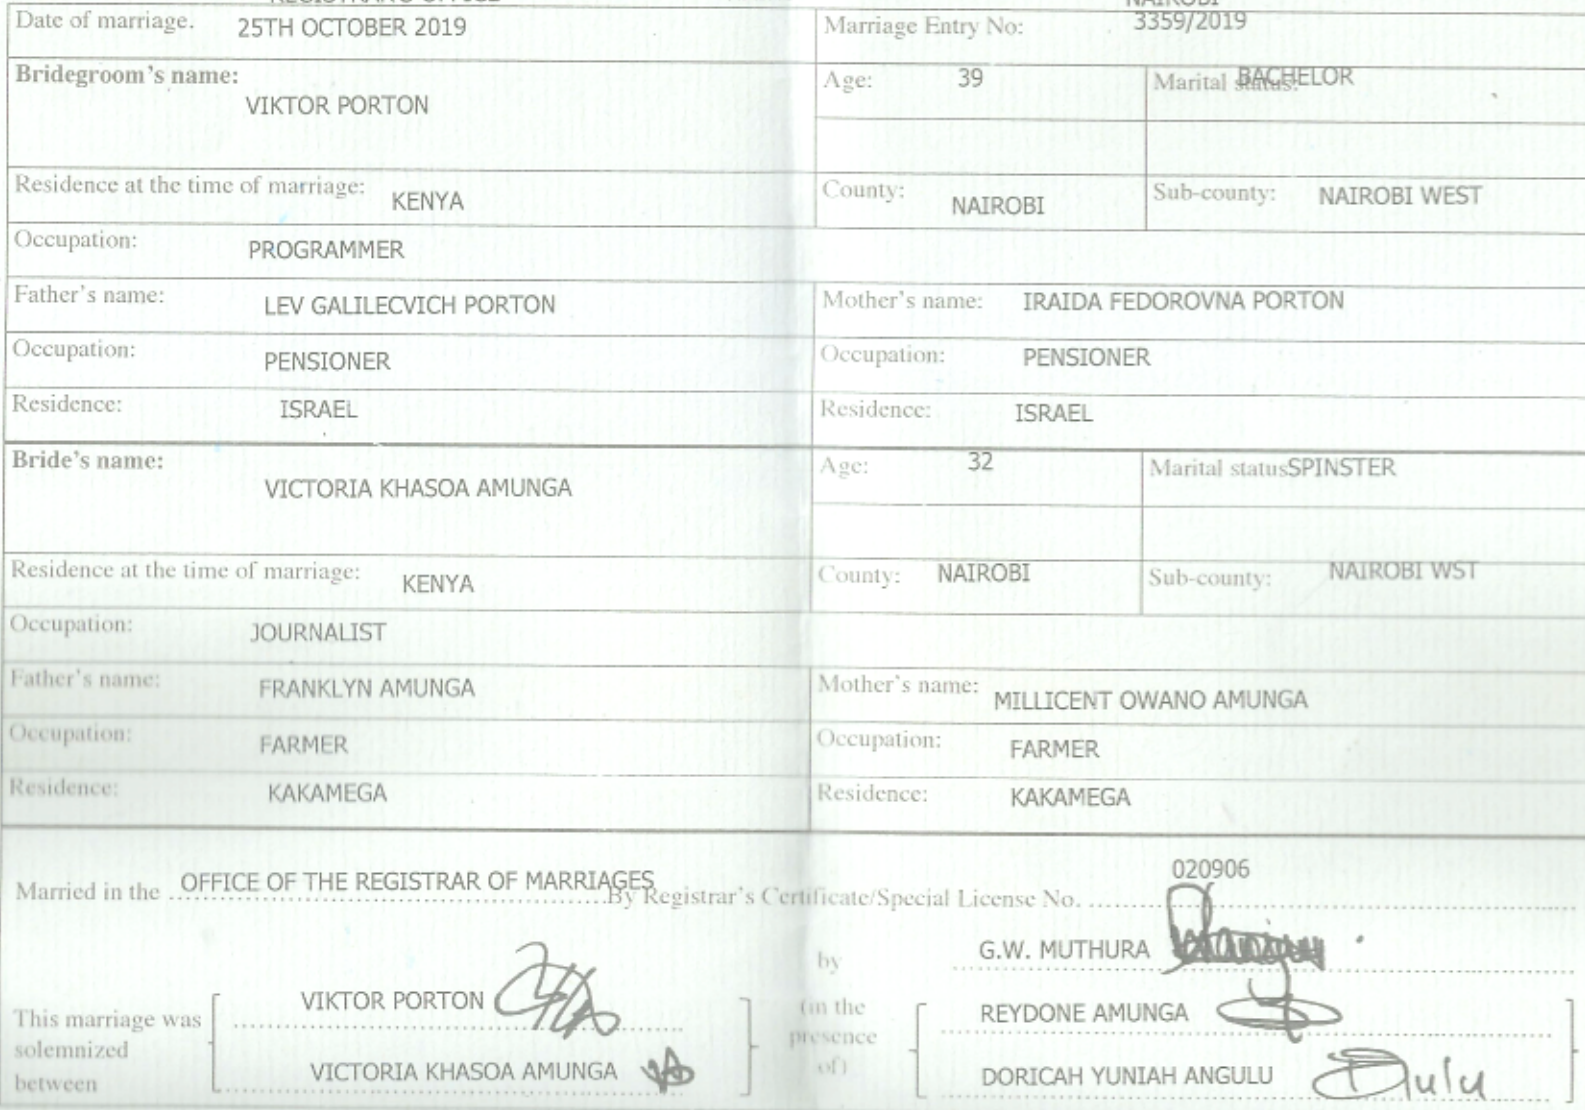 REGISTRAR'S OFFICE NAIROBI
Date of marriage. 25TH OCTOBER 2019 Marriage Entry No: 3359/2019
Bridegroom's name: VIKTOR PORTON Age: 39 Marital status: BACHELOR
Residence at the time of marriage: KENYA County: NAIROBI Sub-county: NAIROBI WEST
Occupation: PROGRAMMER
Father's name: LEV GALILECVICH PORTON Mother's name: IRAIDA FEDOROVNA PORTON
Occupation: PENSIONER Occupation: PENSIONER
Residence: ISRAEL Residence: ISRAEL
Bride's name: VICTORIA KHASOA AMUNGA Age: 32 Marital status SPINSTER
Residence at the time of marriage: KENYA County: NAIROBI Sub-county: NAIROBI WST
Occupation: JOURNALIST
Father's name: FRANKLYN AMUNGA Mother's name: MILLICENT OWANO AMUNGA
Occupation: FARMER Occupation: FARMER
Residence: KAKAMEGA Residence: KAKAMEGA
Married in the OFFICE OF THE REGISTRAR OF MARRIAGES By Registrar's Certificate/Special License No. 020906
by G.W. MUTHURA
This marriage was solemnized between VIKTOR PORTON (in the presence of) REYDONE AMUNGA
VICTORIA KHASOA AMUNGA DORICAH YUNIAH ANGULU